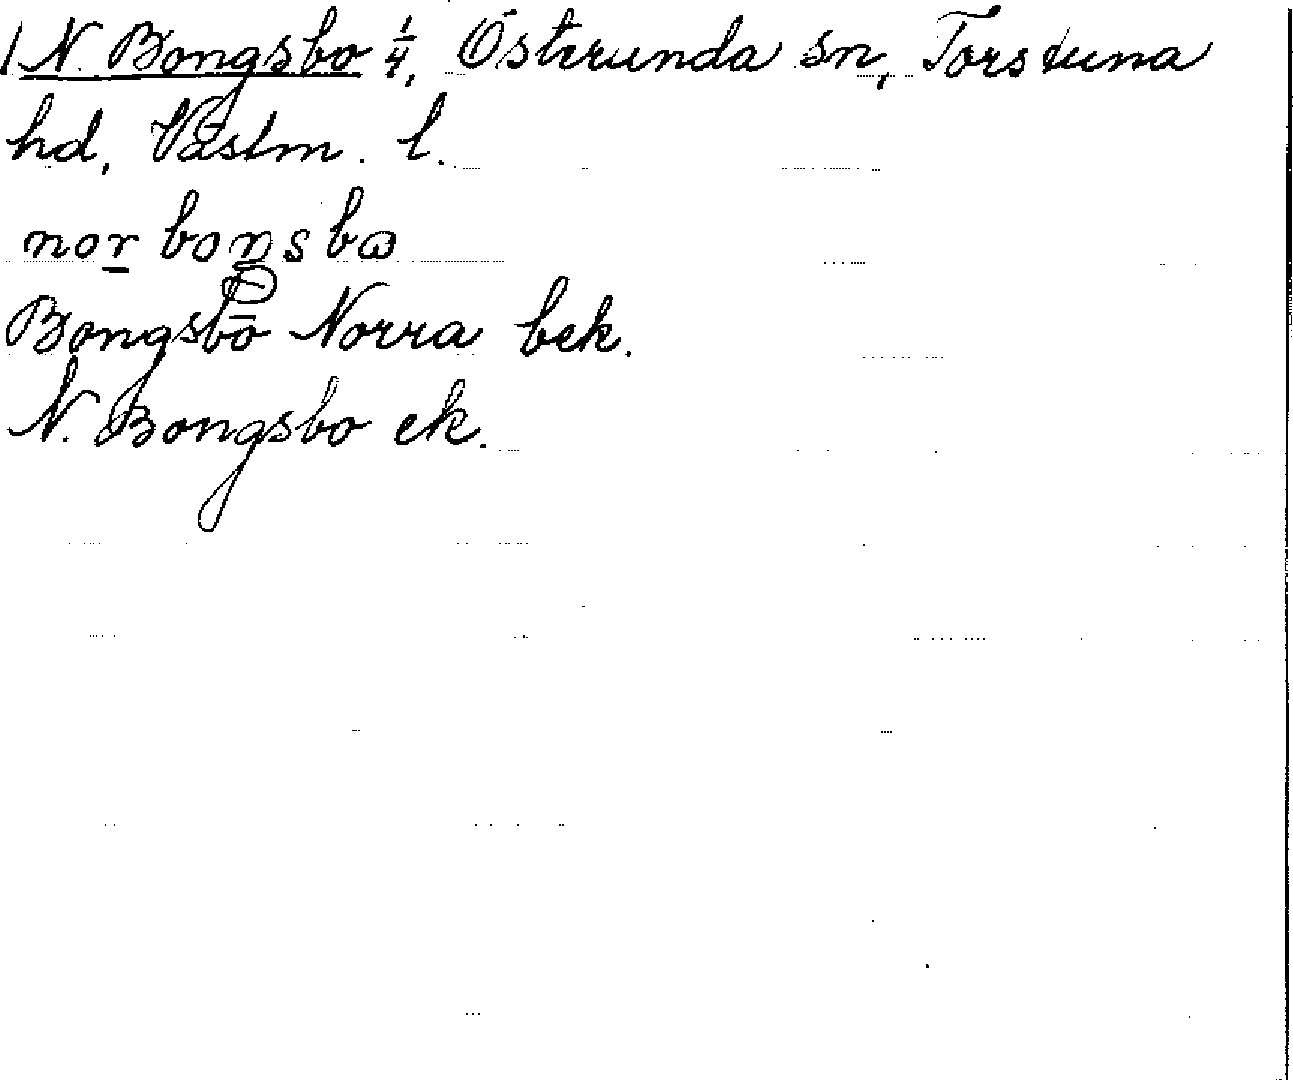 /N. Bongsbo 1/4, Österunda sn, Torstuna
hd, Västm. l.
nor bonsbω
Bongsbo Norra bek.
N. Bongsbo ek.